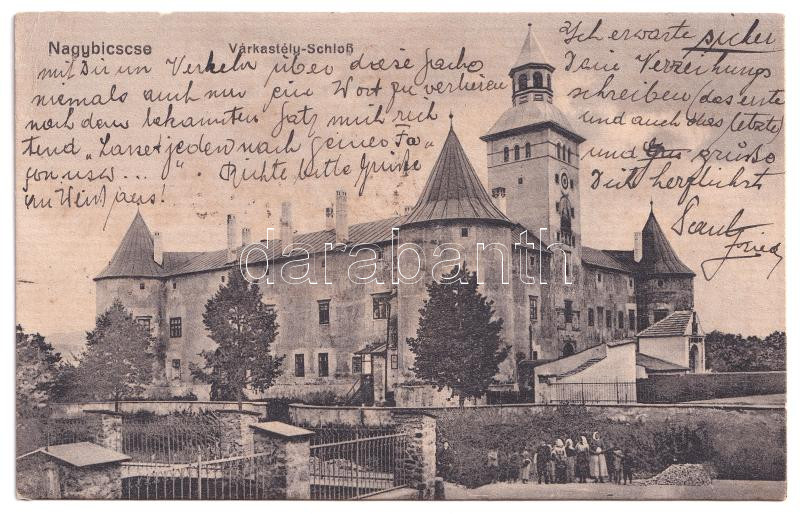 Nagybicscse
Várkastély-Schloß
mit Dir im Verkehr über diese Sache
niemals auch nur ein Wort zu verlieren
nach dem bekannten Satz mich rich
tend „Lasset jeden nach seiner Fa"
çon usw... ". Richte bitte Grüße
an Weinhaus!
Ich erwarte sicher
Deine Verzeihungs
schreiben (das erste
und auch das letzte)
und grüße
Dich herzlichst
darabanth